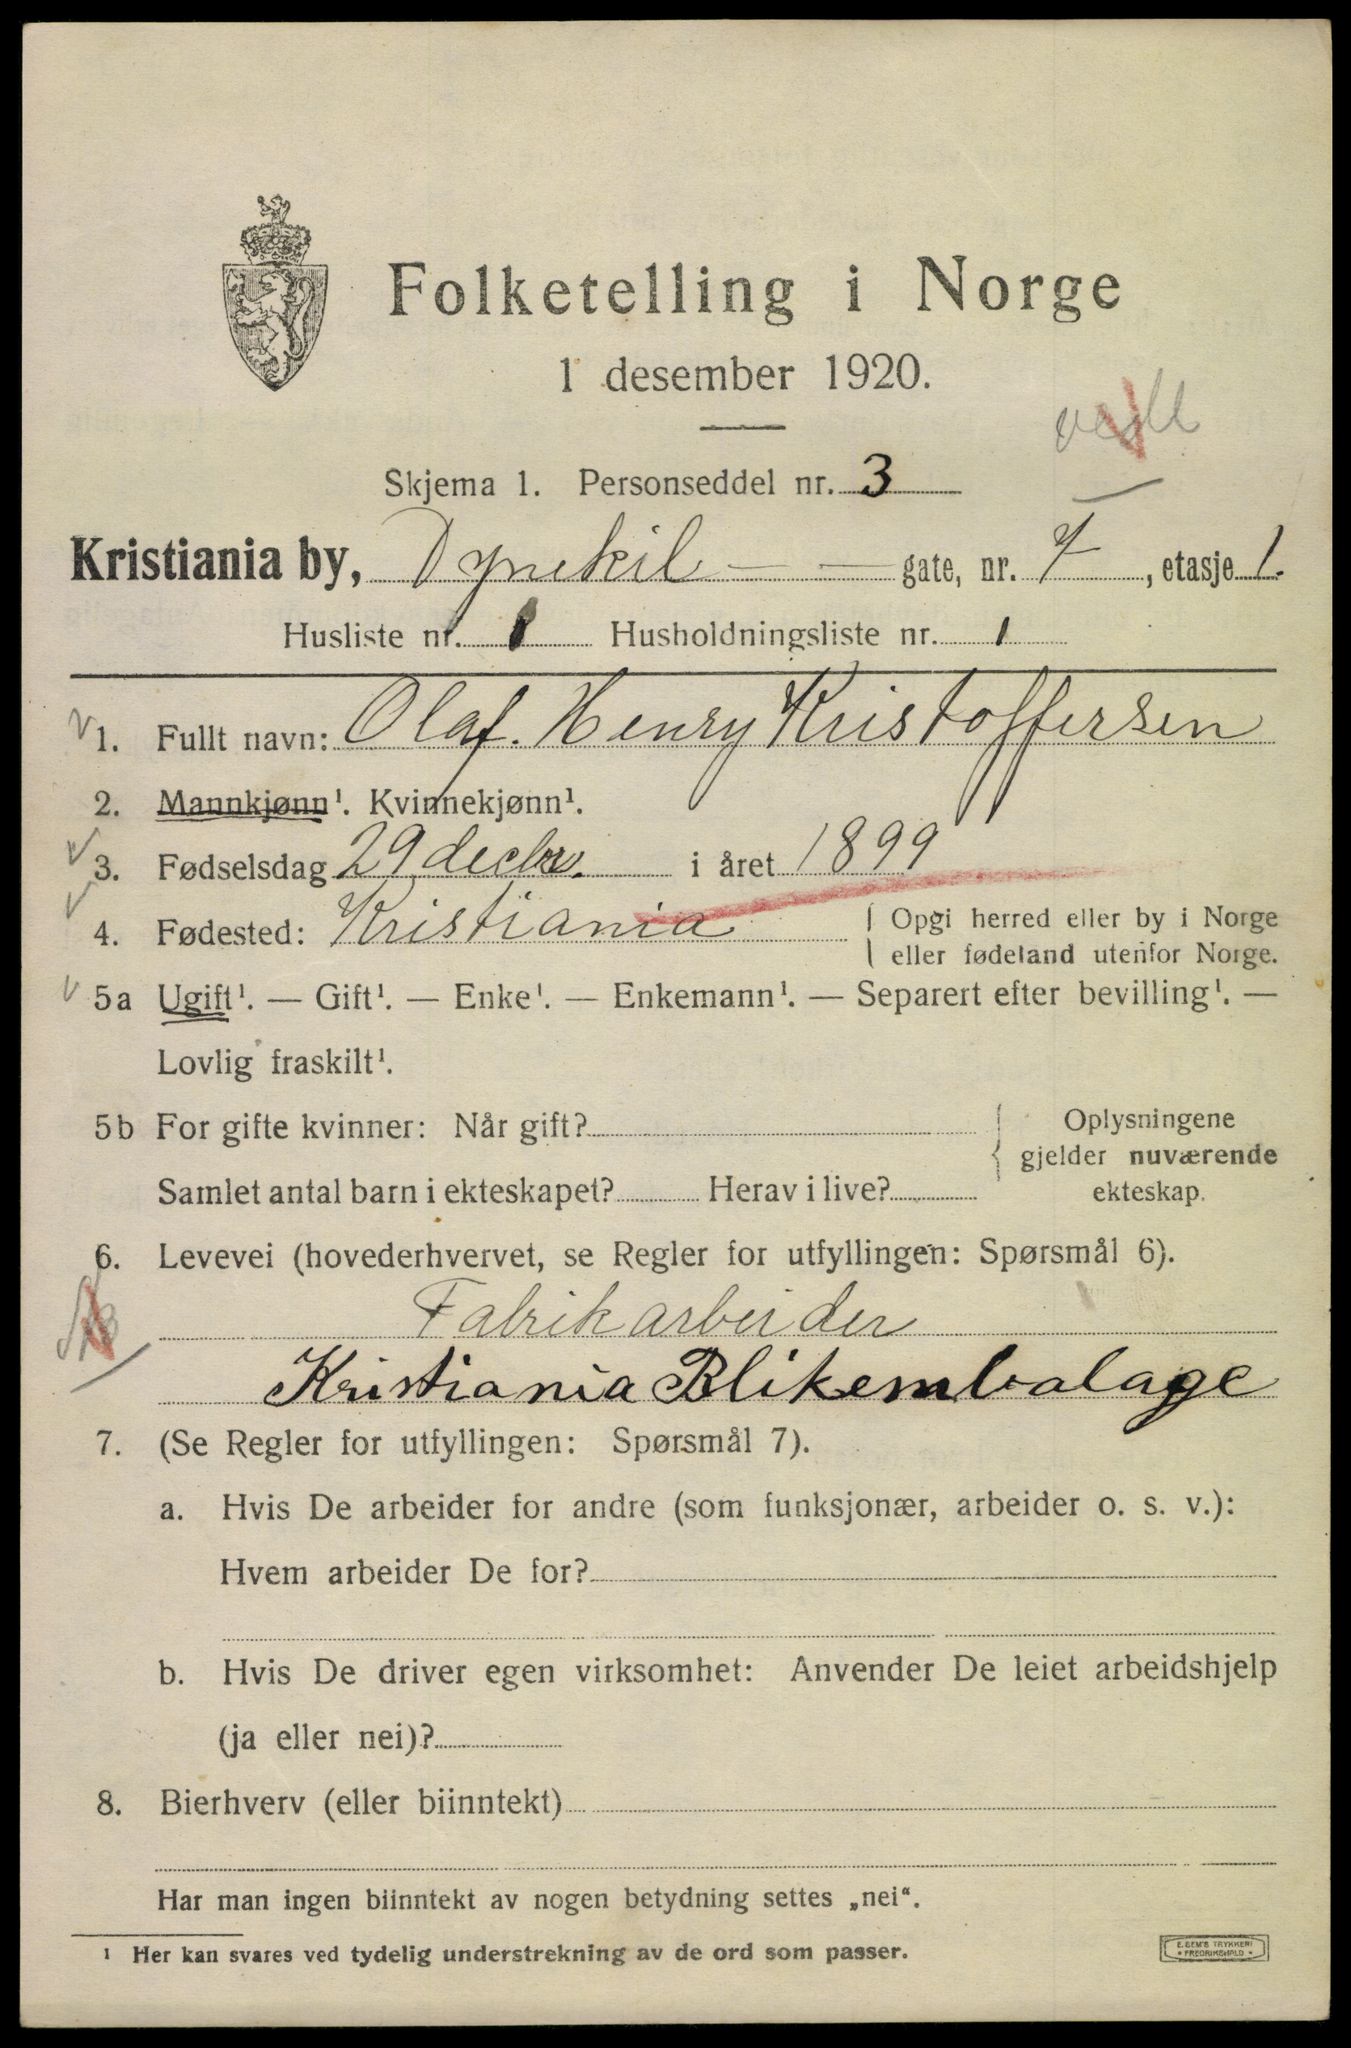 Folketelling i Norge
1 desember 1920.
Skjema 1. Personseddel nr. 3
Kristiania by, Dynekil — — gate, nr. 7, etasje 1.
Husliste nr. 1 Husholdningsliste nr. 1
1. Fullt navn: Olaf. Henry Kristoffersen
2. Mannkjønn¹. Kvinnekjønn¹.
3. Fødselsdag 29 decbr. i året 1899
4. Fødested: Kristiania { Opgi herred eller by i Norge
eller fødeland utenfor Norge.
5a Ugift¹. — Gift¹. — Enke¹. — Enkemann¹. — Separert efter bevilling¹. —
Lovlig fraskilt¹.
5b For gifte kvinner: Når gift? { Oplysningene
gjelder nuværende
Samlet antal barn i ekteskapet? Herav i live? ekteskap.
6. Levevei (hovederhvervet, se Regler for utfyllingen: Spørsmål 6).
Fabrikarbeider
Kristiania Blikembalage
7. (Se Regler for utfyllingen: Spørsmål 7).
a. Hvis De arbeider for andre (som funksjonær, arbeider o. s. v.):
Hvem arbeider De for?
b. Hvis De driver egen virksomhet: Anvender De leiet arbeidshjelp
(ja eller nei)?
8. Bierhverv (eller biinntekt)
Har man ingen biinntekt av nogen betydning settes „nei“.
¹ Her kan svares ved tydelig understrekning av de ord som passer.
E. SEM'S TRYKKERI
• FREDRIKSHALD •